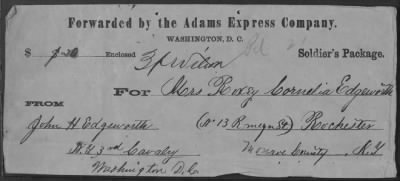 Forwarded by the Adams Express Company.
WASHINGTON, D. C.
$ Enclosed Pd Soldier's Package.
FOR Mrs Roxey Cornelia Edgeworth
FROM
John H Edgeworth (No 13 R St) Rochester
N.Y 3rd Cavalry Monroe County N.Y
Washington D.C